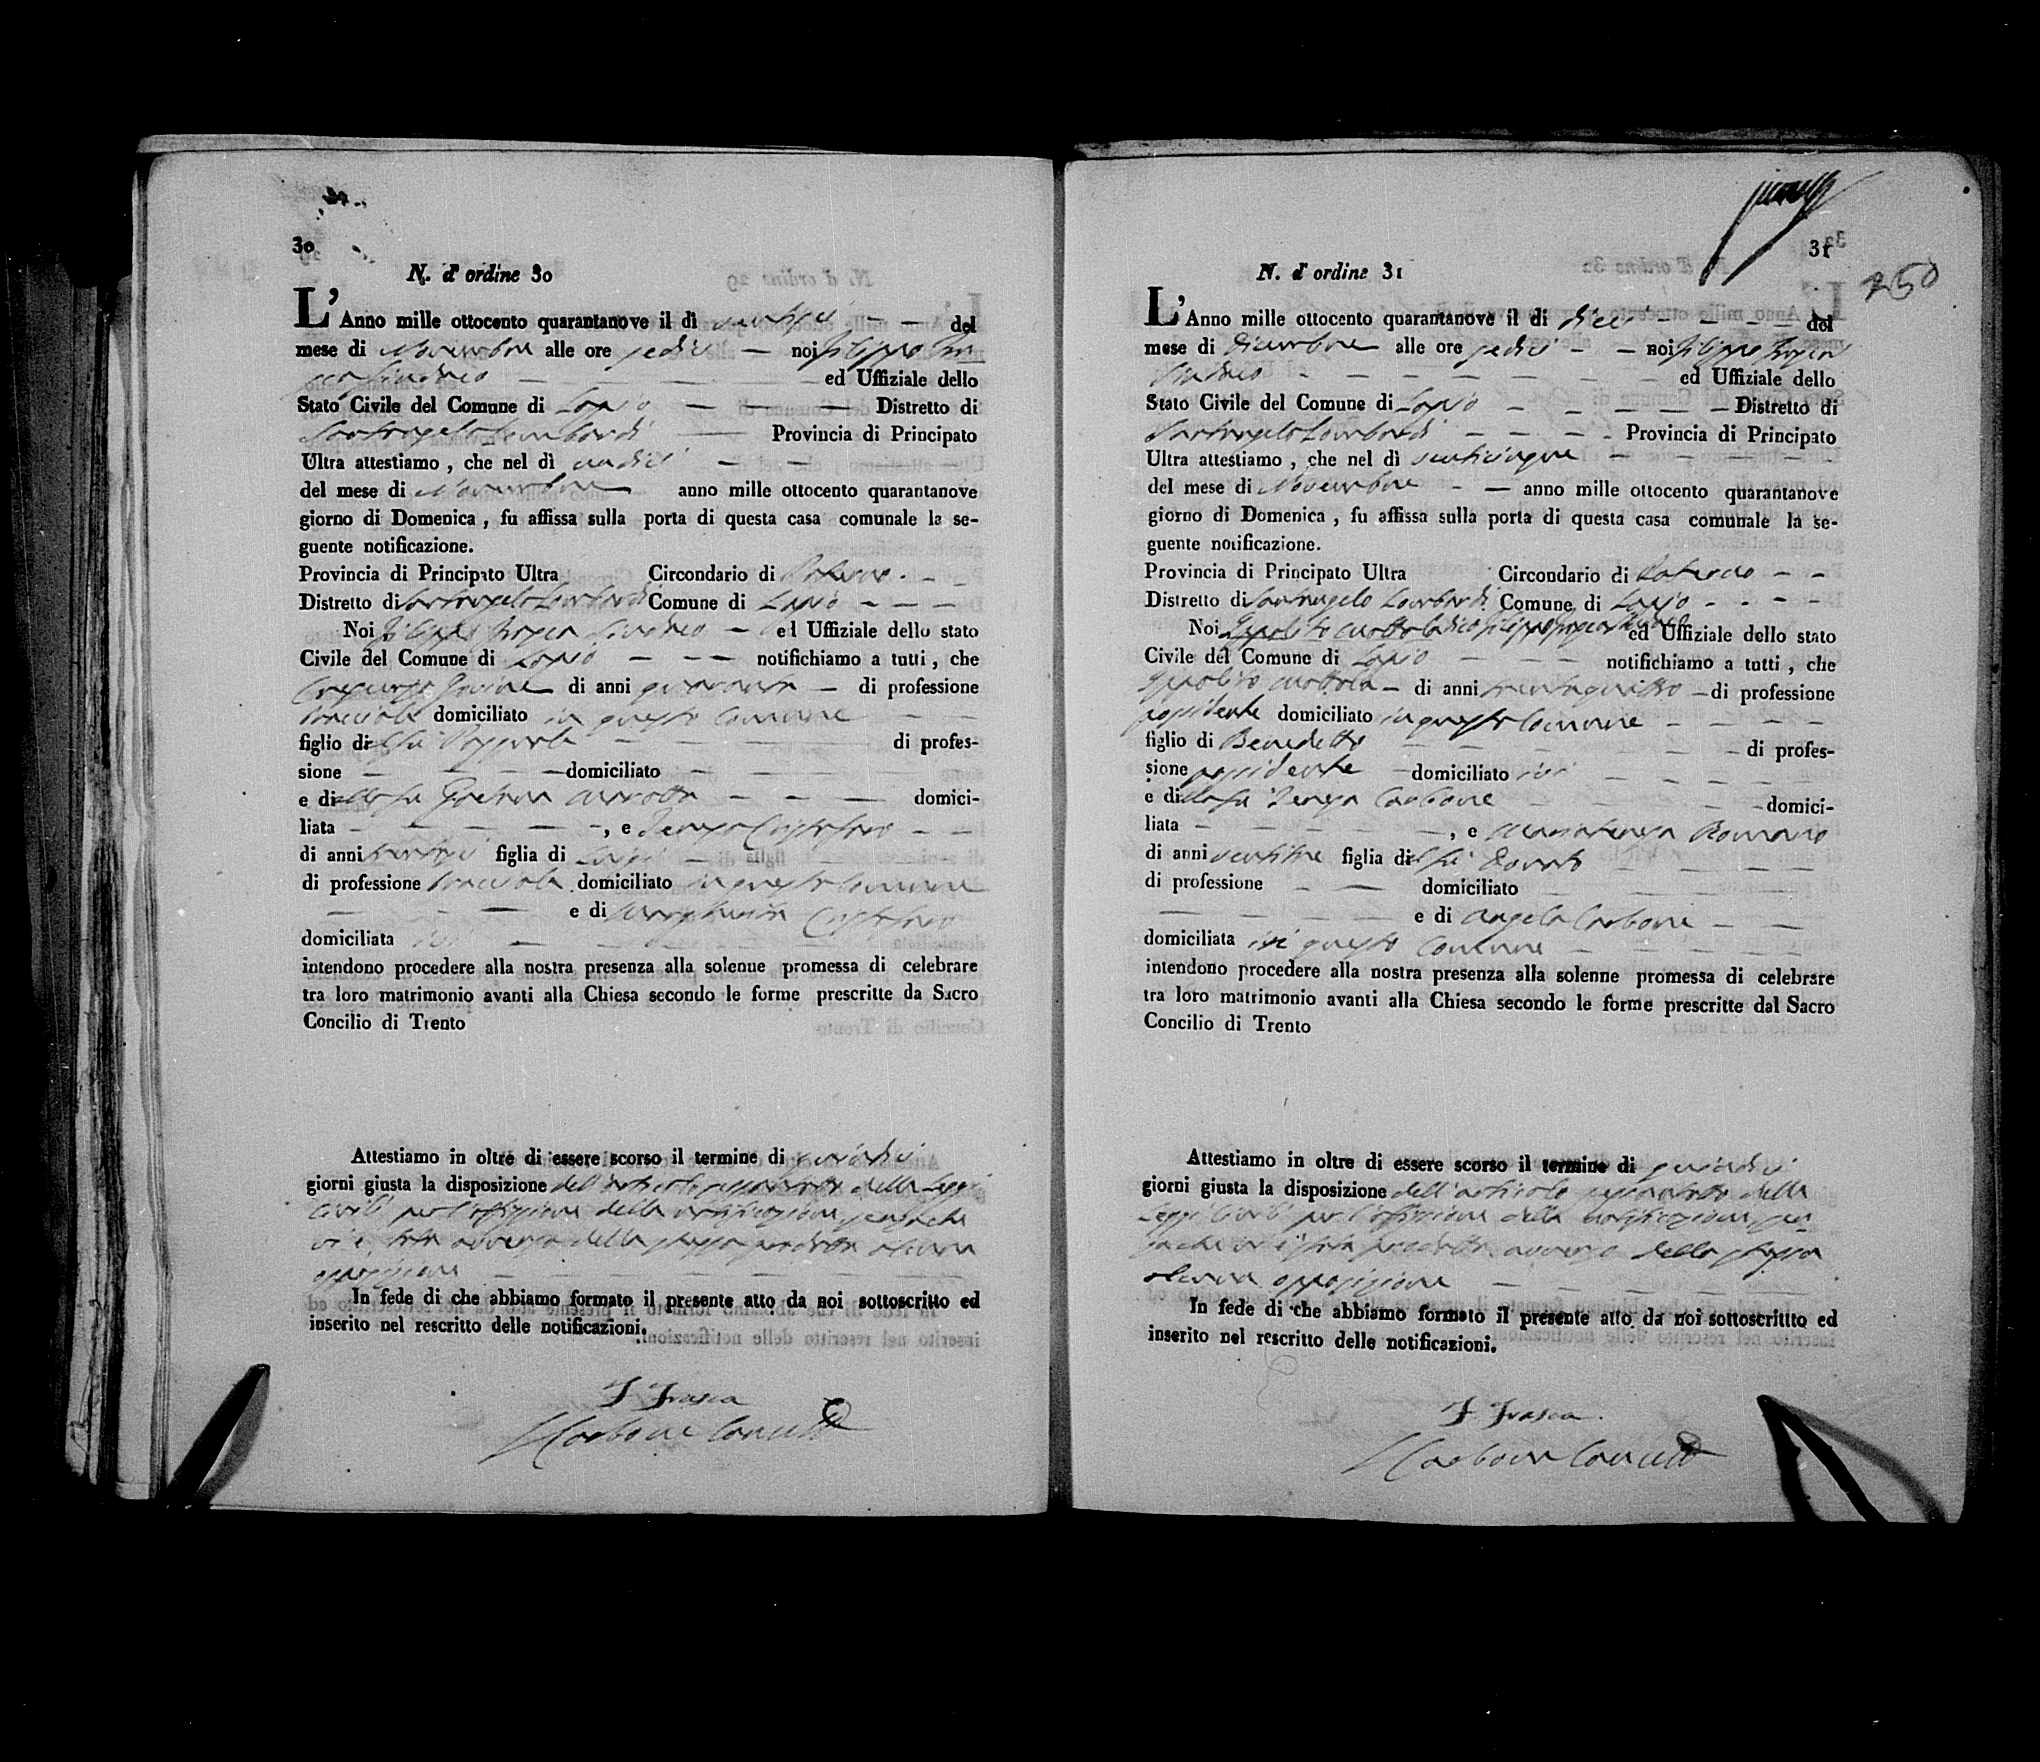 30
N. d' ordine 30
L'Anno mille ottocento quarantanove il dì ventisei del
mese di Novembre alle ore sedici noi Filippo Fra-
sca Sindaco ed Uffiziale dello
Stato Civile del Comune di Lapio Distretto di
Santangelo Lombardi Provincia di Principato
Ultra attestiamo , che nel dì undici
del mese di Novembre anno mille ottocento quarantanove
giorno di Domenica , fu affissa sulla porta di questa casa comunale la se-
guente notificazione.
Provincia di Principato Ultra Circondario di Paterno
Distretto di Santangelo Lombardi Comune di Lapio
Noi Filippo Frasca Sindaco ed Uffiziale dello stato
Civile del Comune di Lapio notifichiamo a tutti , che
di anni quaranta di professione
domiciliato in questo Comune
figlio del fu di profes-
sione domiciliato
e di della fu Gaetana domici-
liata , e Teresa Cristofaro
di anni figlia di Luigi
di professione domiciliato in questo Comune
e di Margherita Cristofaro
domiciliata ivi
intendono procedere alla nostra presenza alla solenue promessa di celebrare
tra loro matrimonio avanti alla Chiesa secondo le forme prescritte da Sacro
Concilio di Trento
Attestiamo in oltre di essere scorso il termine di quindici
giorni giusta la disposizione dell'articolo sessantotto della Leggi
Civili per l'affissione della notificazione senza che
vi è stata avverso della stessa prodotta alcuna
opposizione
In fede di che abbiamo formato il presente atto da noi sottoscritto ed
inserito nel rescritto delle notificazioni.
F Frasca
Carbone Cancell
31
250
N. d' ordine 31
L'Anno mille ottocento quarantanove il di dieci del
mese di Dicembre alle ore sedici noi Filippo Frasca
Sindaco ed Uffiziale dello
Stato Civile del Comune di Lapio Distretto di
Santangelo Lombardi Provincia di Principato
Ultra attestiamo , che nel dì venticinque
del mese di Novembre anno mille ottocento quarantanove
giorno di Domenica , fu affissa sulla porta di questa casa comunale la se-
guente notificazione.
Provincia di Principato Ultra Circondario di Paterno
Distretto di Santangelo Lombardi Comune di Lapio
Noi dico Filippo Frasca Sindaco ed Uffiziale dello stato
Civile del Comune di Lapio notifichiamo a tutti , che
di anni trentaquattro di professione
possidente domiciliato in questo Comune
figlio di Benedetto di profes-
sione possidente domiciliato ivi
e di della fu Teresa Carbone domici-
liata , e Mariateresa Romano
di anni ventitre figlia del fu Donato
di professione domiciliato
e di Angela Carbone
domiciliata in questo Comune
intendono procedere alla nostra presenza alla solenne promessa di celebrare
tra loro matrimonio avanti alla Chiesa secondo le forme prescritte dal Sacro
Concilio di Trento
Attestiamo in oltre di essere scorso il termine di quindici
giorni giusta la disposizione dell'articolo sessantotto della
Leggi Civili per l'affissione della notificazione sen-
za che vi è stata prodotta avverso della stessa
alcuna opposizione
In fede di che abbiamo formato il presente atto da noi sottoscrittto ed
inserito nel rescritto delle notificazioni.
F Frasca
Carbone Cancell